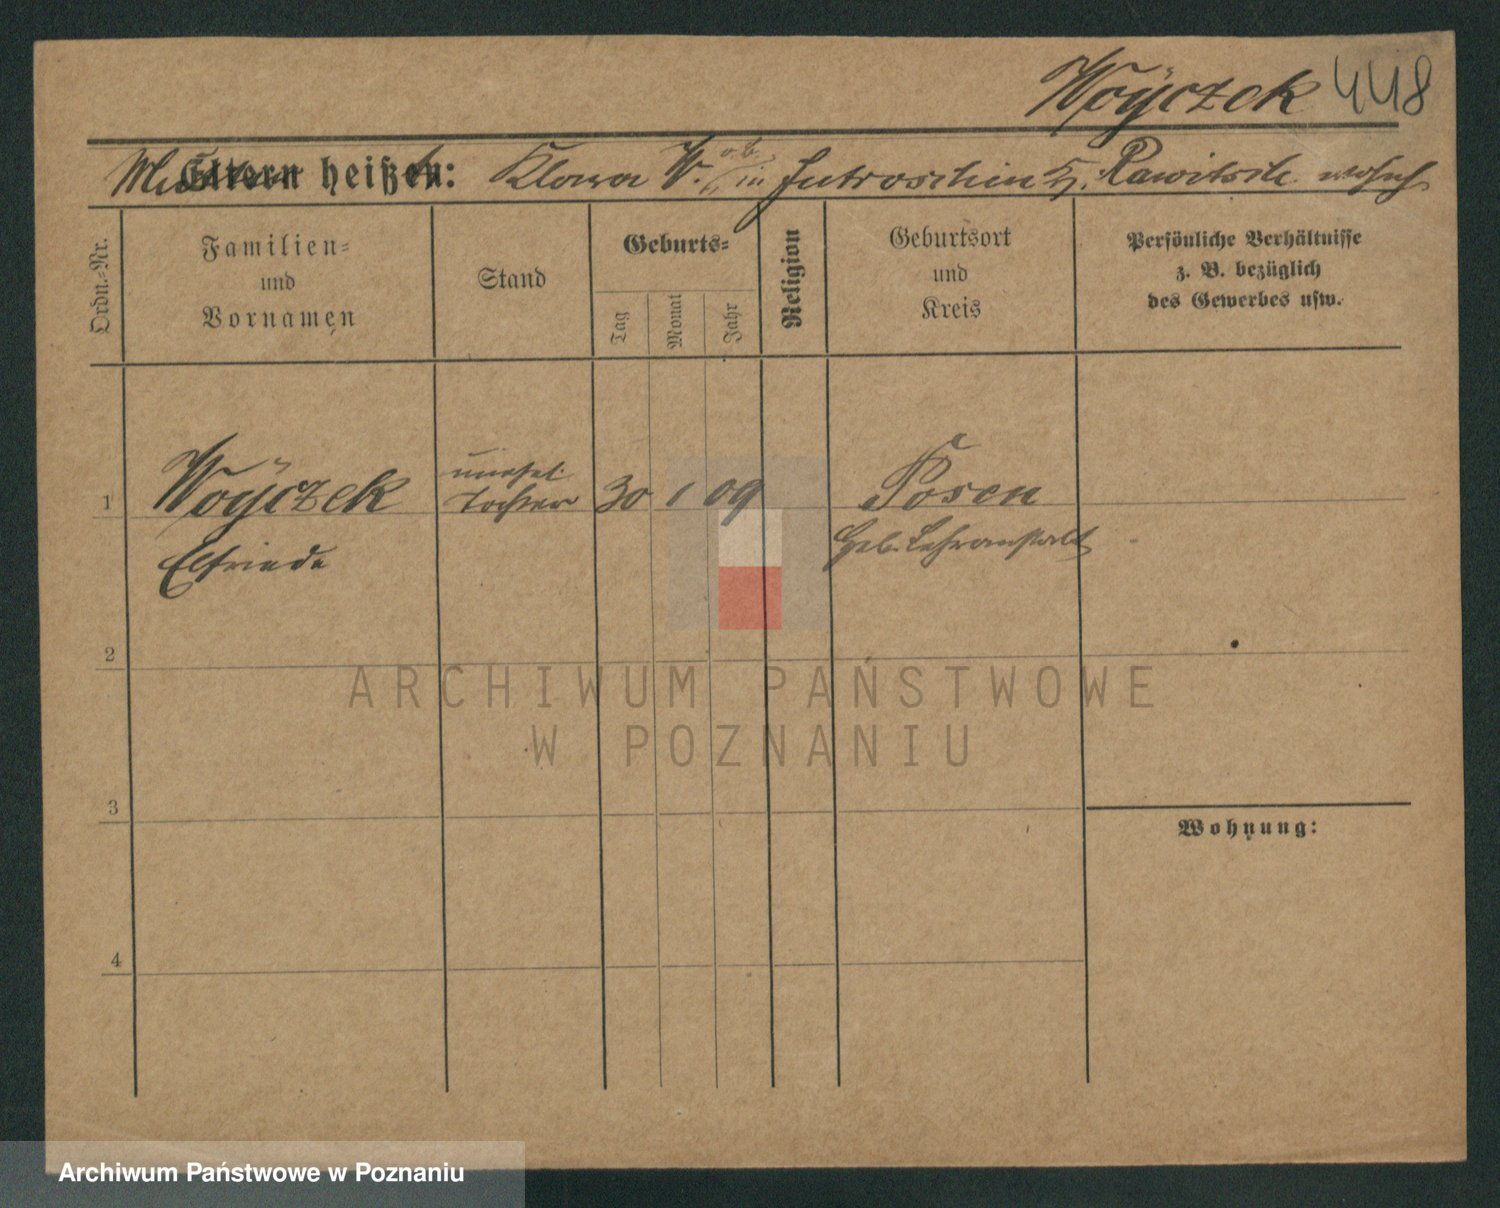 Woÿczek 448
Eltern heißen: Klara W. in Jutroschin Kr. Rawitsch wohnh.
Ordn.-Nr.
Familien-
und
Vornamen
Stand
Geburts-
Tag
Monat
Jahr
Religion
Geburtsort
und
Kreis
Persönliche Verhältnisse
z. B. bezüglich
des Gewerbes usw.
1
Woÿczek
Elfriede
unehel.
Tochter
30
1
09
Posen
Heb. Lehranstalt
2
3
4
Wohnung:
ARCHIWUM PAŃSTWOWE
W POZNANIU
Archiwum Państwowe w Poznaniu